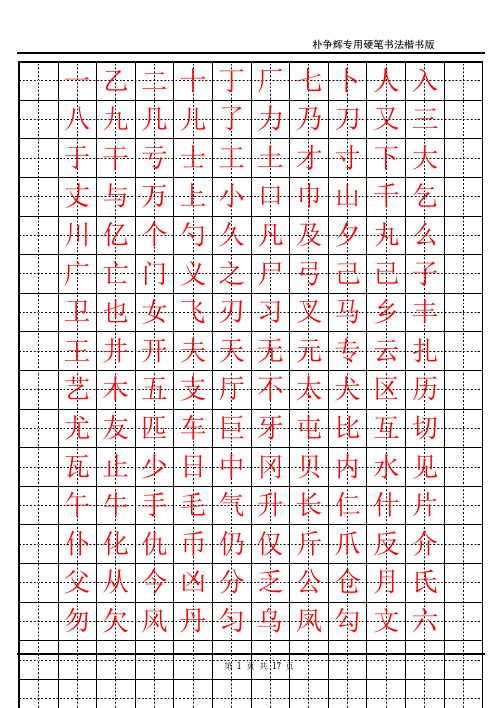 朴争辉专用硬笔书法楷书版
一乙二十丁厂七卜人入
八九几儿了力乃刀又三
于干亏士工土才寸下大
丈与万上小口巾山千乞
川亿个勺久凡及夕丸么
广亡门义之尸弓己已子
卫也女飞刃习叉马乡丰
王井开夫天无元专云扎
艺木五支厅不太犬区历
尤友匹车巨牙屯比互切
瓦止少日中冈贝内水见
午牛手毛气升长仁什片
仆化仇币仍仅斤爪反介
父从今凶分乏公仓月氏
勿欠风丹匀乌凤勾文六
第 1 页 共 17 页